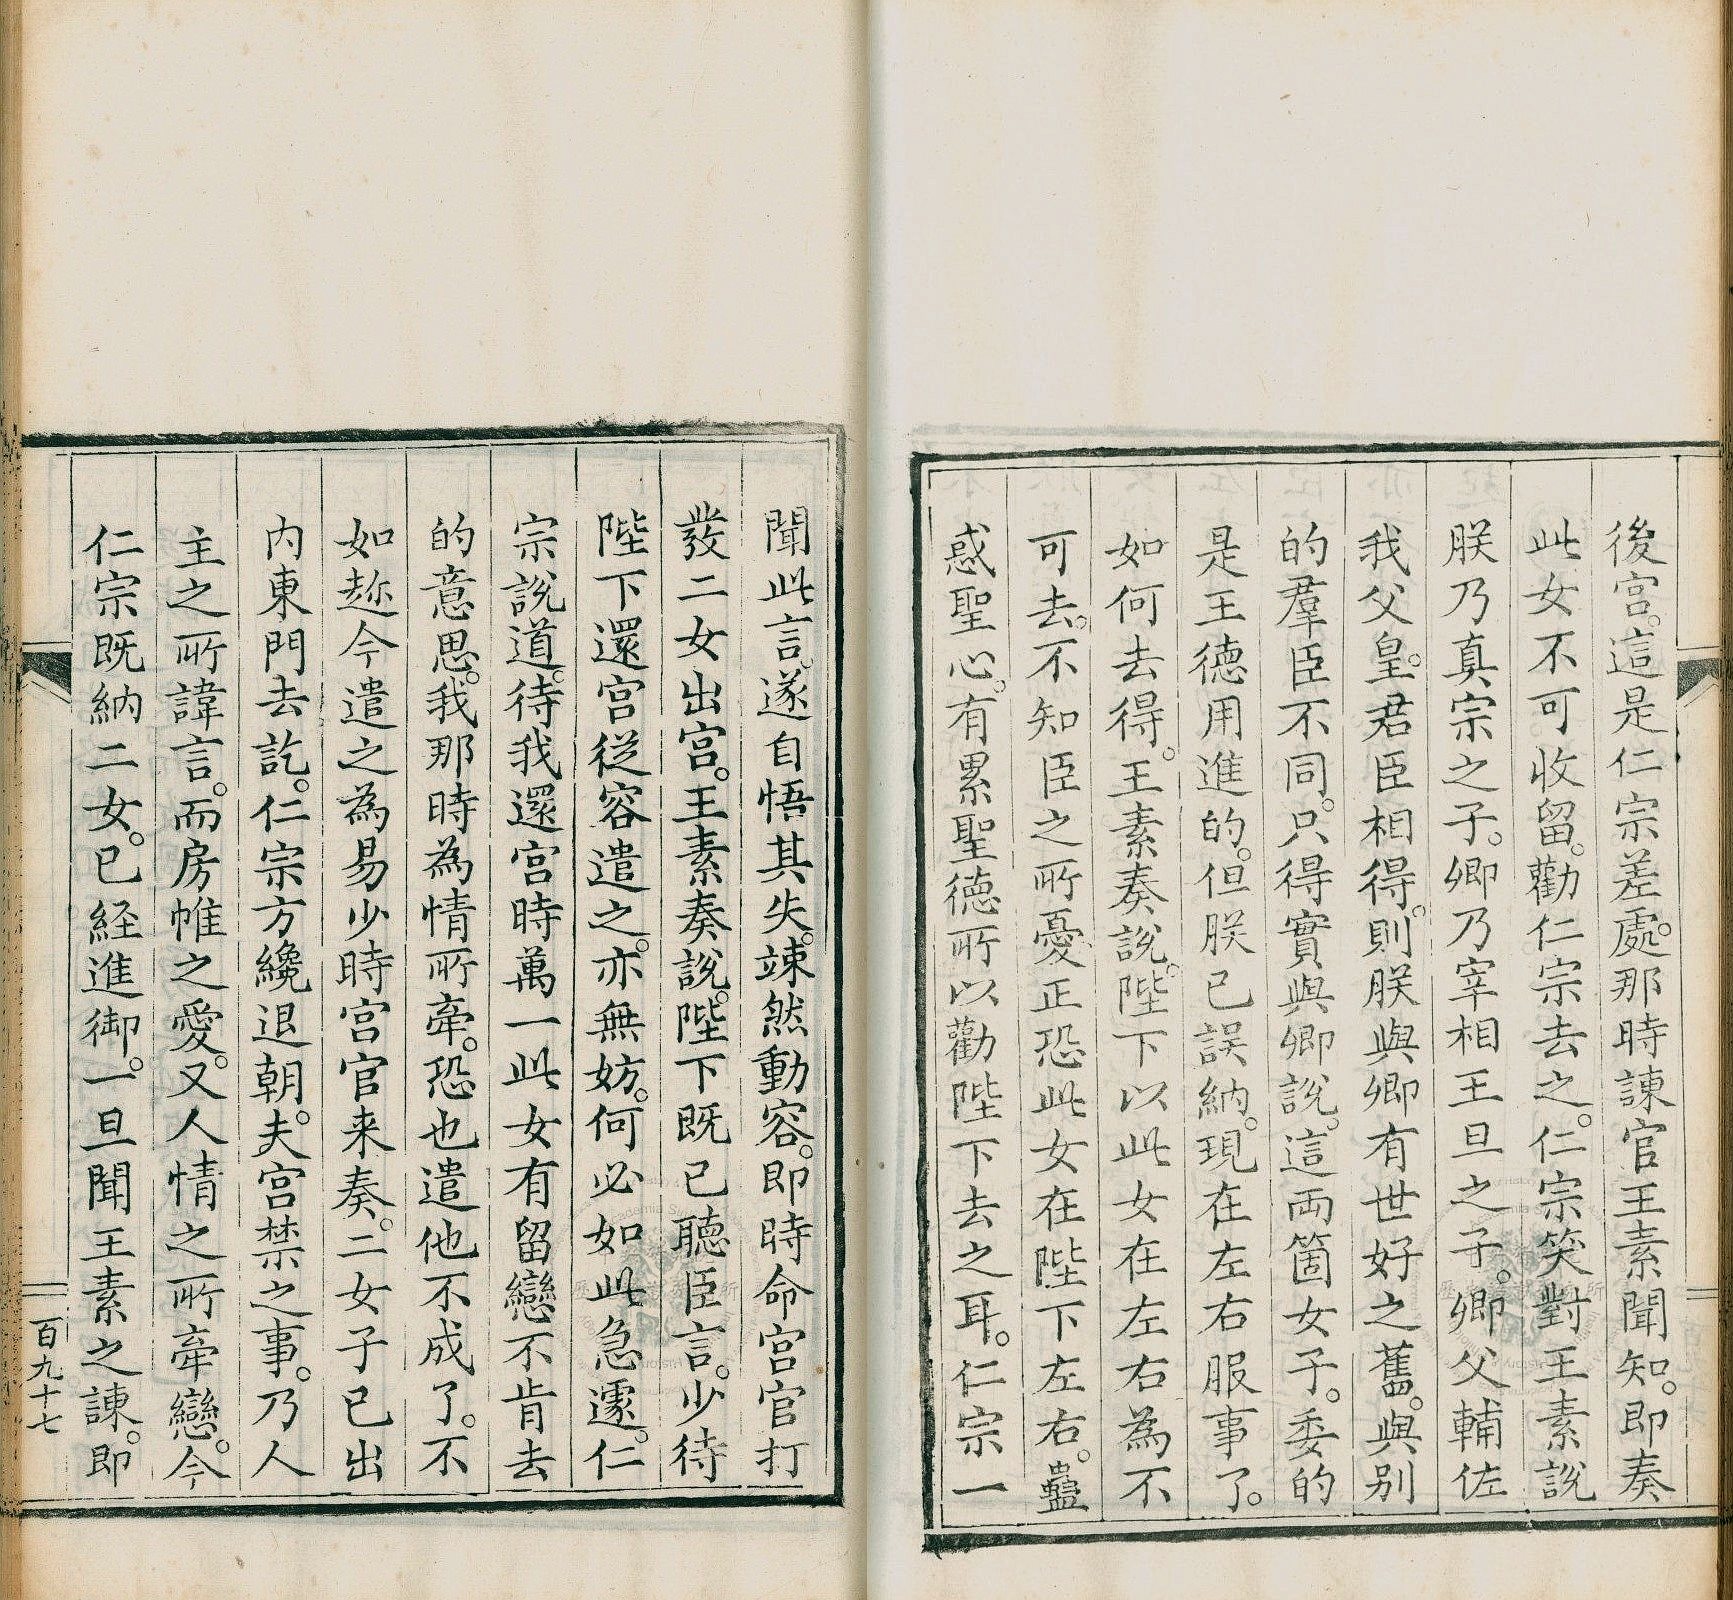 後宮。這是仁宗差處。那時諫官王素聞知。即奏
此女不可收留。勸仁宗去之。仁宗笑對王素說
朕乃真宗之子。卿乃宰相王旦之子。卿父輔佐
我父皇。君臣相得。則朕與卿有世好之舊。與别
的羣臣不同。只得實與卿說。這兩箇女子。委的
是王德用進的。但朕已誤納。現在左右服事了。
如何去得。王素奏說。陛下以此女在左右為不
可去。不知臣之所憂正恐此女在陛下左右。蠱
惑聖心。有累聖德所以勸陛下去之耳。仁宗一
聞此言。遂自悟其失。竦然動容。即時命宮官打
發二女出宮。王素奏說。陛下既已聽臣言。少待
陛下還宮從容遣之。亦無妨。何必如此急遽。仁
宗說道。待我還宮時萬一此女有留戀不肯去
的意思。我那時為情所牽。恐也遣他不成了。不
如趂今遣之為易少時宮官来奏。二女子已出
内東門去訖。仁宗方纔退朝。夫宮禁之事。乃人
主之所諱言。而房帷之愛。又人情之所牽戀。今
仁宗既納二女。已経進御。一旦聞王素之諫。即
百九十七